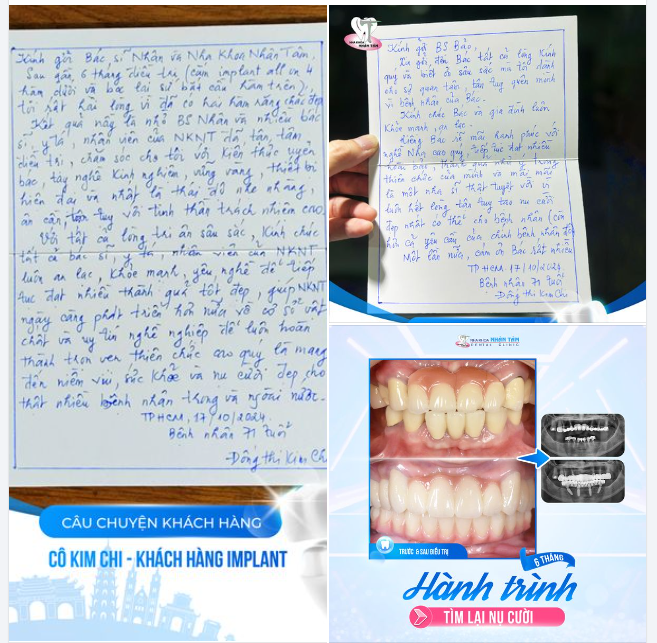 Kính gởi Bác, sĩ Nhân và Nha Khoa Nhân Tâm.
Sau gần 6 tháng điều trị (cắm implant all on 4
hàm dưới và bọc lại sứ bắt cầu hàm trên),
tôi rất hài lòng vì đã có hai hàm răng chắc đẹp
Kết quả này là nhờ BS Nhân và nhiều bác
sĩ, y tá, nhân viên của NKNT đã tận tâm
điều trị, chăm sóc cho tôi với kiến thức uyên
bác, tay nghề kinh nghiệm, vững vàng, thiết bị
hiện đại và nhất là thái độ nhẹ nhàng,
ân cần, tận tụy với tinh thần trách nhiệm cao.
Với tất cả lòng tri ân sâu sắc, kính chúc
tất cả bác sĩ, y tá, nhân viên của NKNT
luôn an lạc, khỏe mạnh, yêu nghề để tiếp
tục đạt nhiều thành quả tốt đẹp, giúp NKNT
ngày càng phát triển hơn nữa về cơ sở vật
chất và uy tín nghề nghiệp để luôn hoàn
thành trọn vẹn thiên chức cao quý là mang
đến niềm vui, sức khỏe và nụ cười đẹp cho
thật nhiều bệnh nhân trong và ngoài nước.
TPHCM, 17/10/2024.
Bệnh nhân 71 tuổi
Đồng Thị Kim Ch
CÂU CHUYỆN KHÁCH HÀNG
CÔ KIM CHI - KHÁCH HÀNG IMPLANT
NHA KHOA
NHÂN TÂM
Kính gởi BS Bảo,
Xin gởi đến Bác tất cả lòng kính
quý và biết ơn sâu sắc mà tôi dành
cho sự quan tâm, tận tụy quên mình
vì bệnh nhân của Bác.
Kính chúc Bác và gia đình luôn
khỏe mạnh, an lạc.
Riêng Bác sẽ mãi hạnh phúc với
nghề Nha cao quý, tiếp tục đạt nhiều
thành quả như ý trong
thiên chức của mình và mãi mãi
là một nha sĩ thật tuyệt vời vì
luôn hết lòng tận tụy tạo nụ cười
đẹp nhất có thể cho bệnh nhân (còn
hơn cả yêu cầu của chính bệnh nhân
Một lần nữa, cám ơn Bác rất nhiều
TPHCM 17/10/2024
Bệnh nhân 71 tuổi
Đồng Thị Kim Chi
NHA KHOA NHÂN TÂM
DENTAL CLINIC
TRƯỚC & SAU ĐIỀU TRỊ
6 THÁNG
Hành trình
TÌM LẠI NỤ CƯỜI